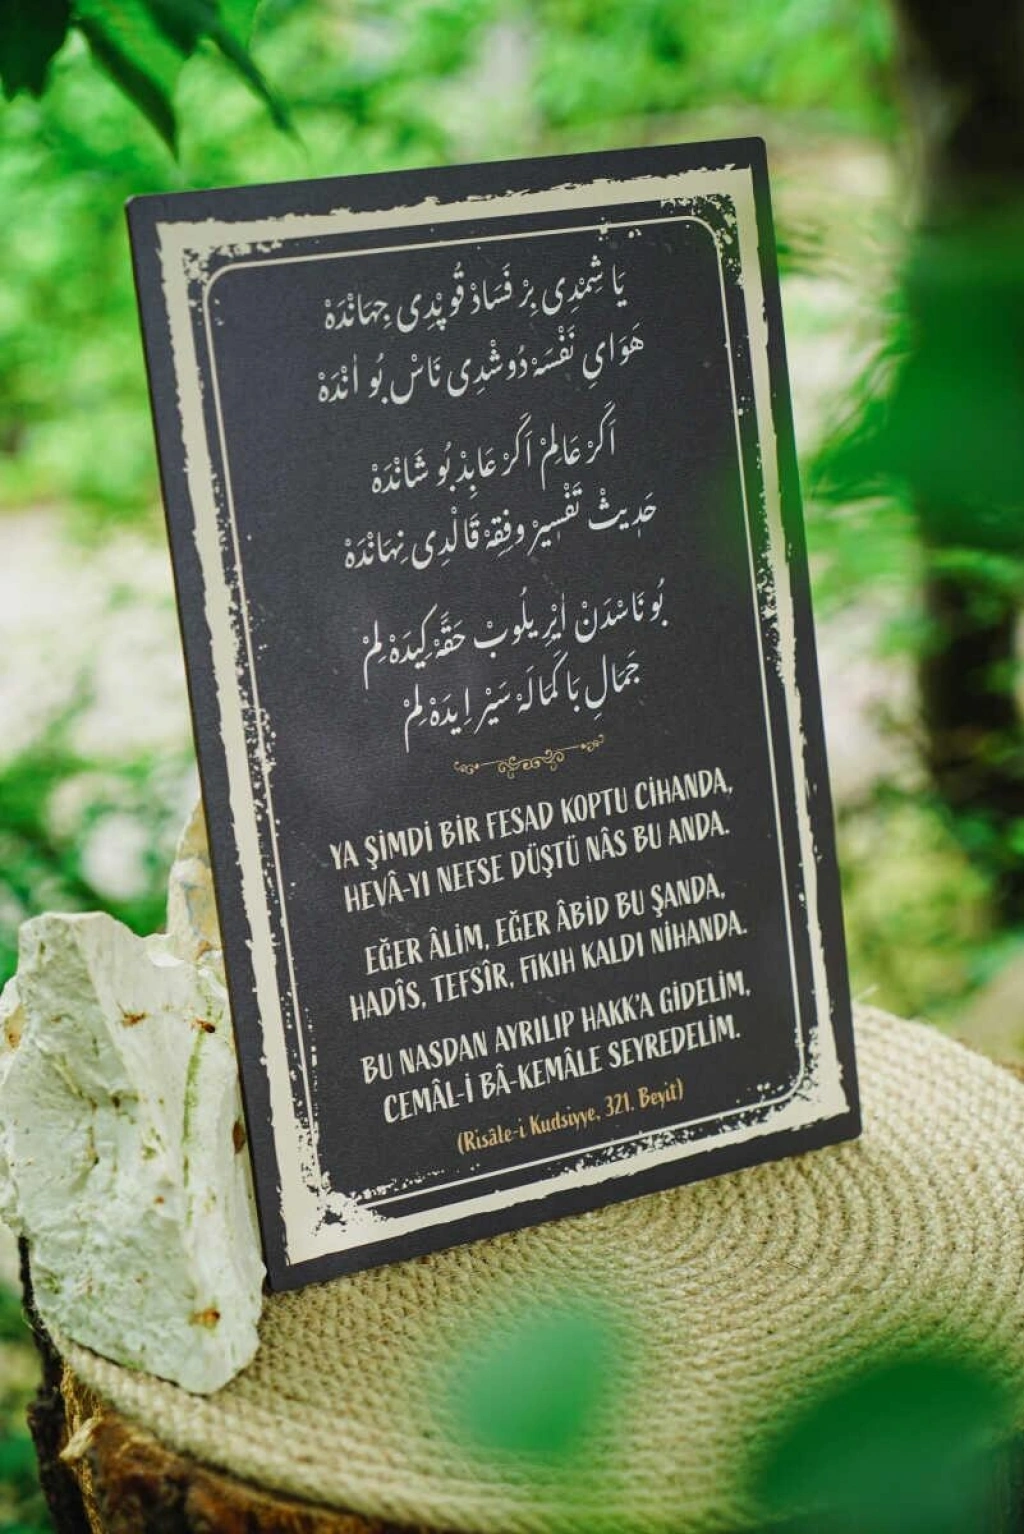 يَا شِمْدِى بِرْ فَسَادْ قُوپْدِى جِهَانْدَهْ
هَوَايِ نَفْسَهْ دُوشْدِى نَاسْ بُو اٰنْدَهْ
اَكَرْ عَالِمْ اَكَرْ عَابِدْ بُو شَانْدَهْ
حَدِيثْ تَفْسِيرْ وفِقِهْ قَالْدِى نِهَانْدَهْ
بُو نَاسْدَنْ اَيْرِيلُوبْ حَقَّهْ كِيدَهْ لِمْ
جَمَالِ بَا كَمَالَهْ سَيْرْ اِيدَهْ لِمْ
YA ŞİMDİ BİR FESAD KOPTU CİHANDA,
HEVÂ-YI NEFSE DÜŞTÜ NÂS BU ANDA.
EĞER ÂLİM, EĞER ÂBİD BU ŞANDA,
HADÎS, TEFSÎR, FIKIH KALDI NİHANDA.
BU NASDAN AYRILIP HAKK'A GİDELİM,
CEMÂL-İ BÂ-KEMÂLE SEYREDELİM.
(Risâle-i Kudsiyye, 321. Beyit)